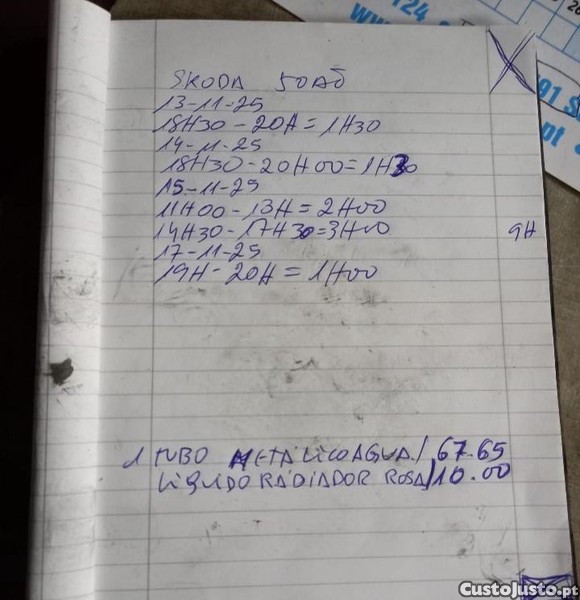 SKODA JOAO
13-11-25
18H30-20H=1H30
14-11-25
18H30-20H00=1H30
15-11-25
11H00-13H=2H00
14H30-17H30=3H00 9H
17-11-25
19H-20H=1H00
1 TUBO METALICO AGUA/67.65
LIQUIDO RADIADOR ROSA/10.00
124
www.
pt
CustoJusto.pt